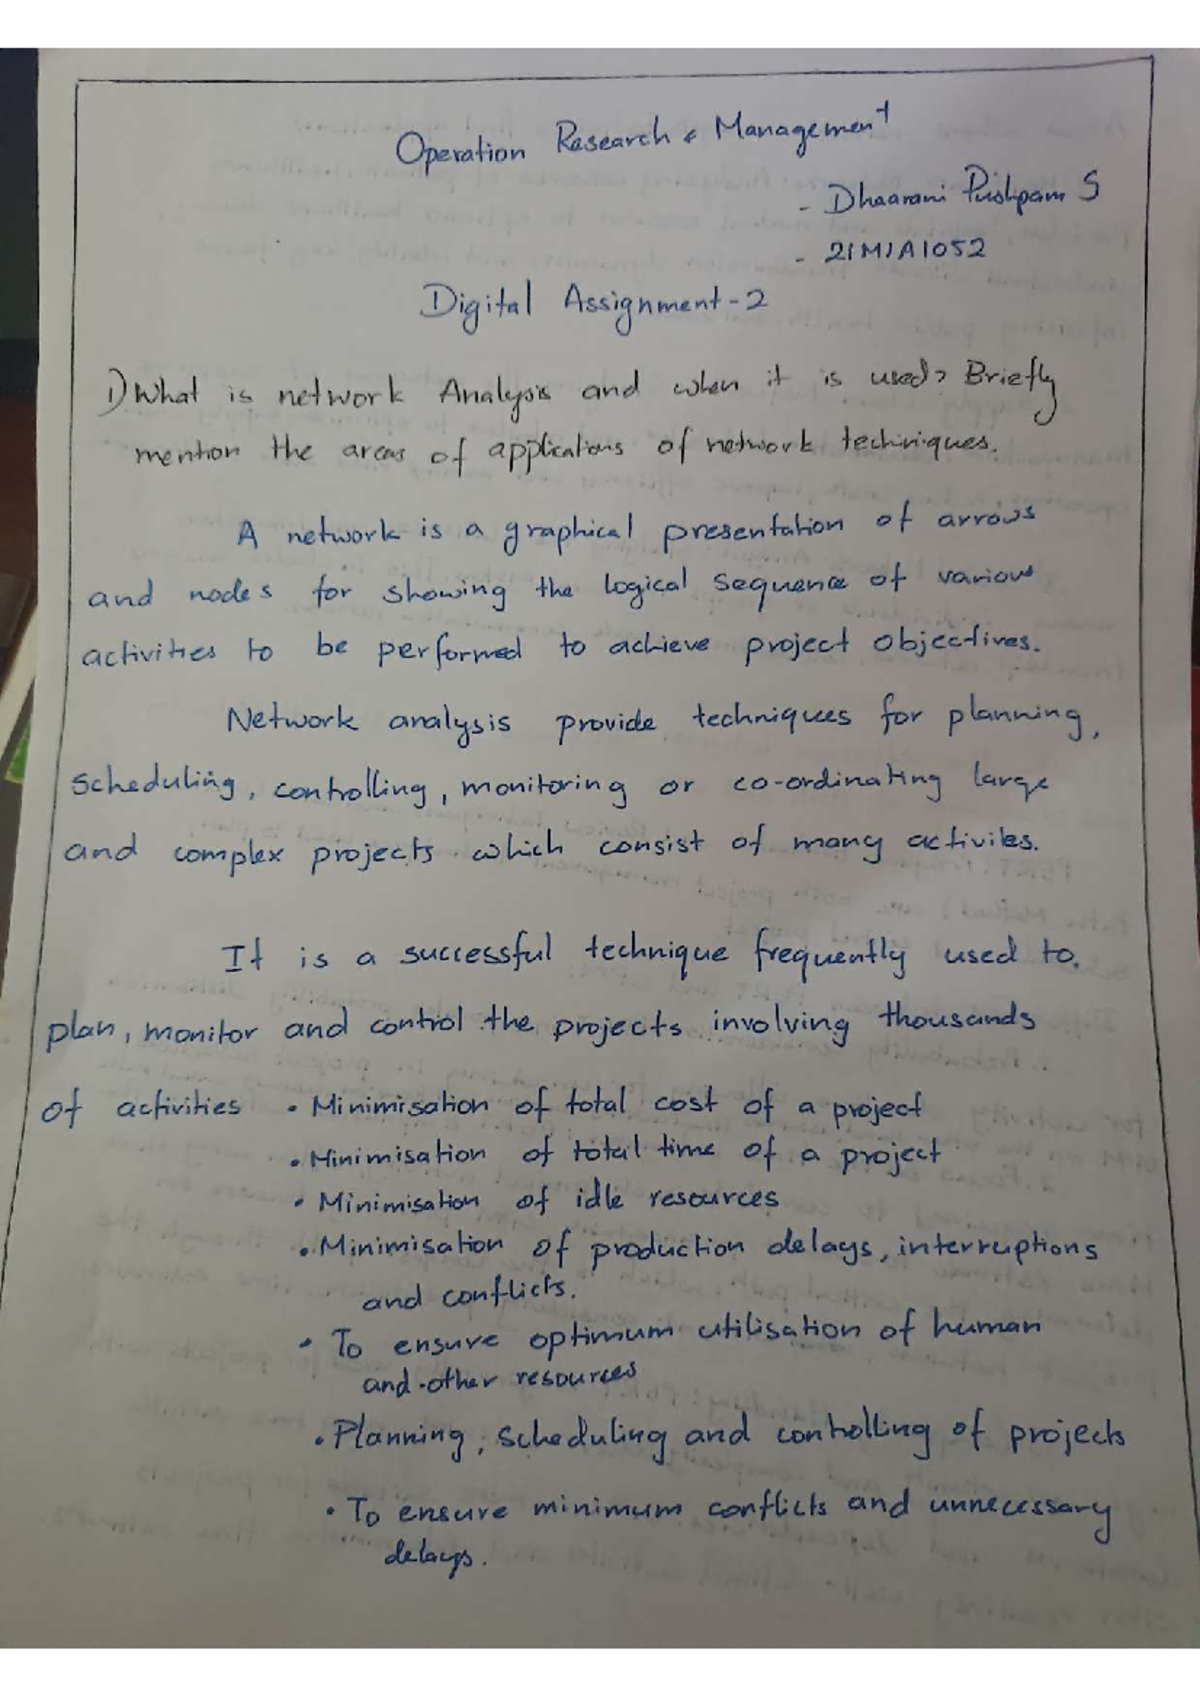 Operation Research & Management
- Dhaarani Pushpam S
- 21MIA1052
Digital Assignment-2
1) What is network Analysis and when it is used? Briefly
mention the areas of applications of network techniques.
A network is a graphical presentation of arrows
and nodes for showing the logical sequence of various
activities to be performed to achieve project objectives.
Network analysis provide techniques for planning,
scheduling, controlling, monitoring or co-ordinating large
and complex projects which consist of many activites.
It is a successful technique frequently used to.
plan, monitor and control the projects involving thousands
of activities • Minimisation of total cost of a project
• Minimisation of total time of a project
• Minimisation of idle resources
• Minimisation of production delays, interruptions
and conflicts.
• To ensure optimum utilisation of human
and other resources
• Planning, scheduling and controlling of projects
• To ensure minimum conflicts and unnecessary
delays.